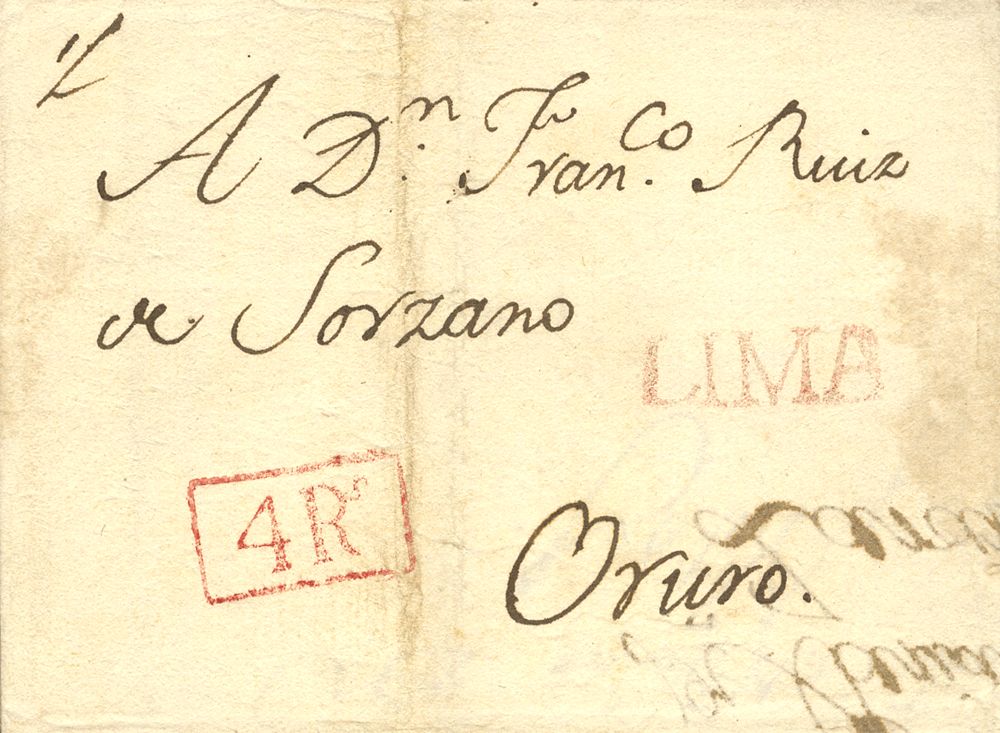 A Dn. Franco. Ruiz
de Sorzano
LIMA
4 Rs
Oruro.